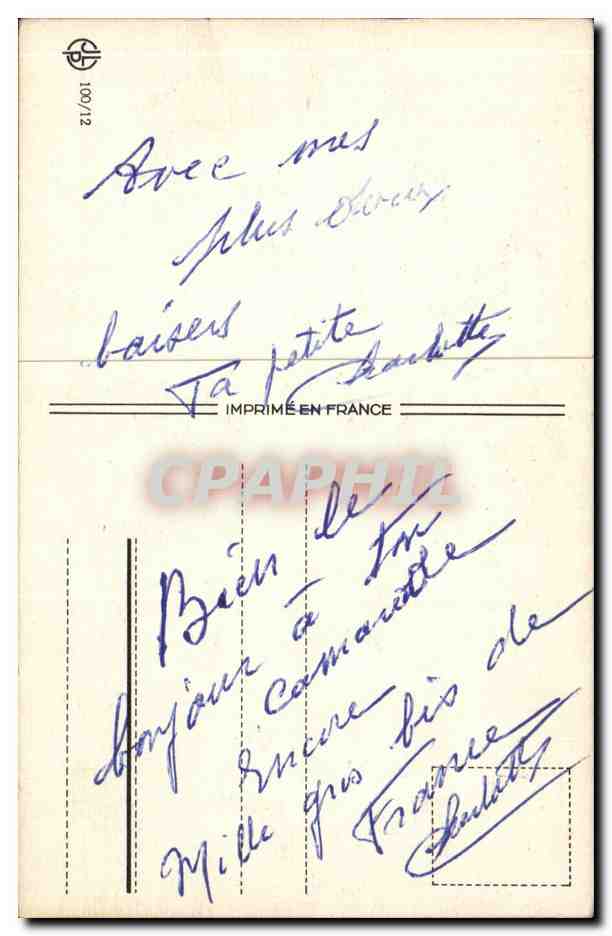 JLP
100/12
Avec mes
plus doux
baisers
Ta petite Charlotte
IMPRIMÉ EN FRANCE
CPAPHIL
Bien le
bonjour à ton
camarade
Encore
Mille gros bis de
France
Charlotte